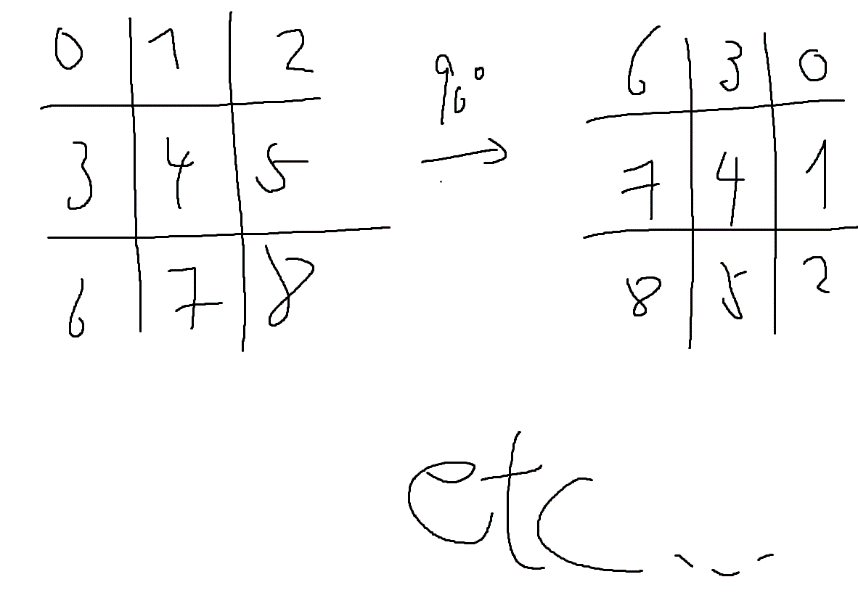 0 1 2
3 4 5
6 7 8
90°
6 3 0
7 4 1
8 5 2
etc...